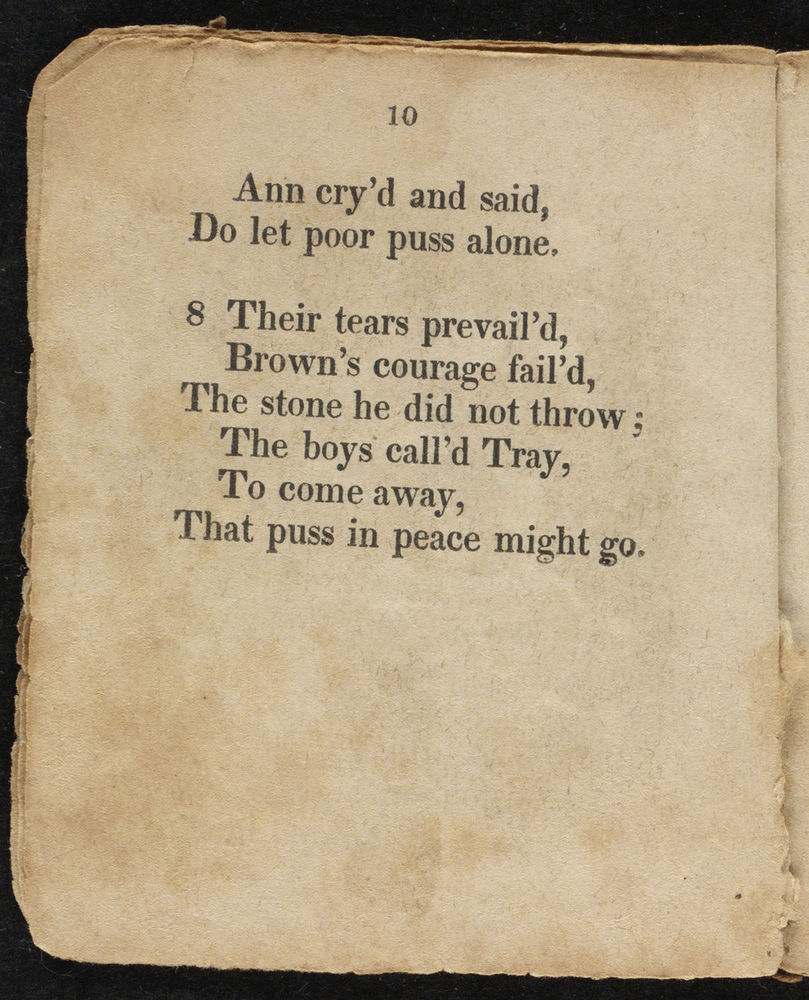 10
Ann cry'd and said,
Do let poor puss alone.
8 Their tears prevail'd,
Brown's courage fail'd,
The stone he did not throw;
The boys call'd Tray,
To come away,
That puss in peace might go.